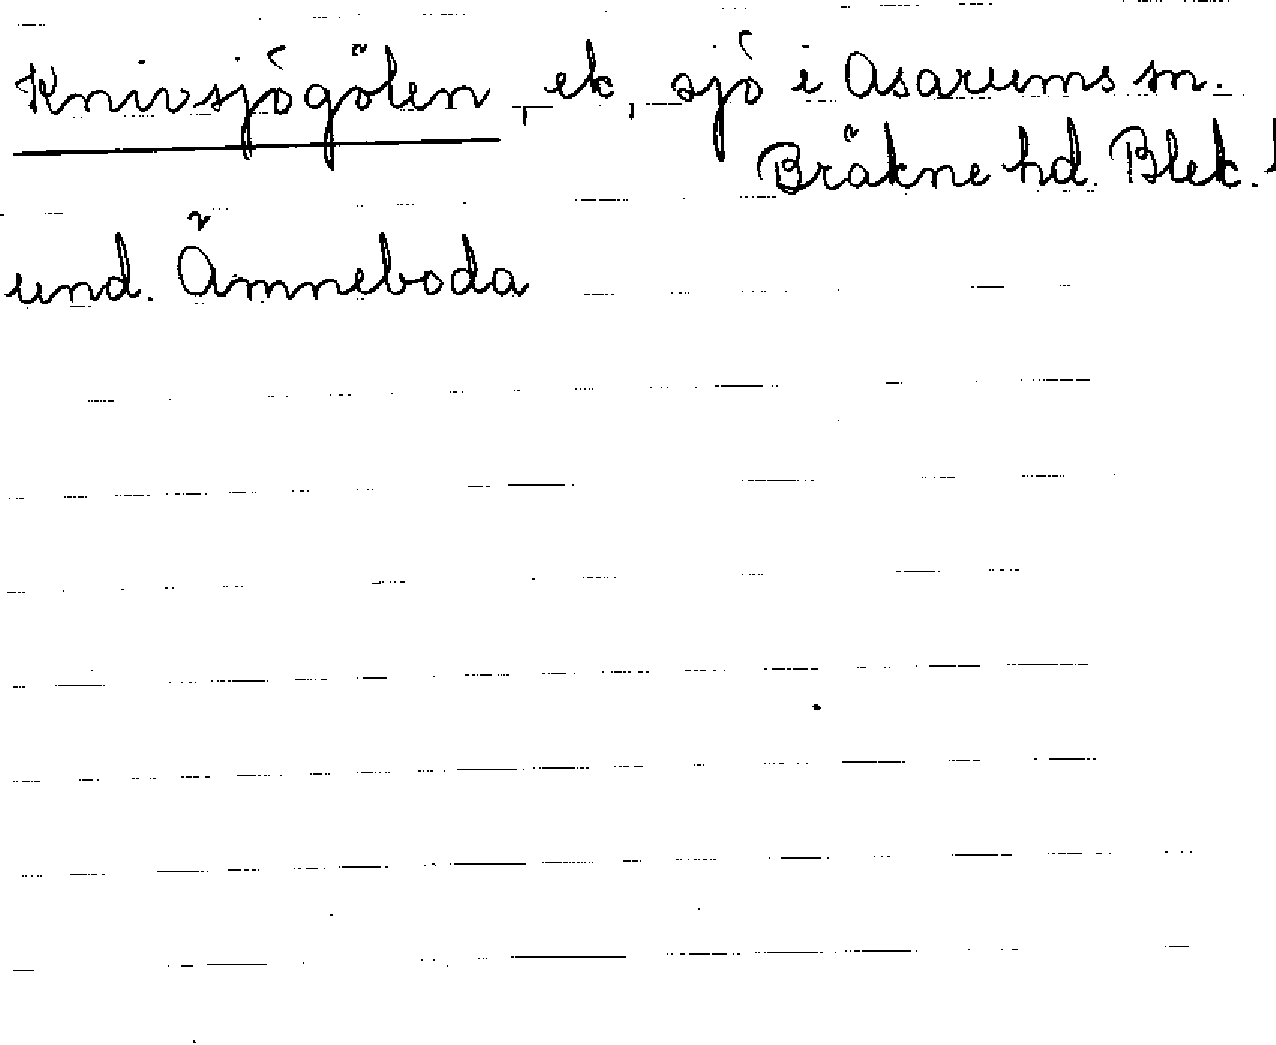 Knivsjögölen, ek, sjö i Asarums sn.
Bräkne hd. Blek. l
und. Ämneboda